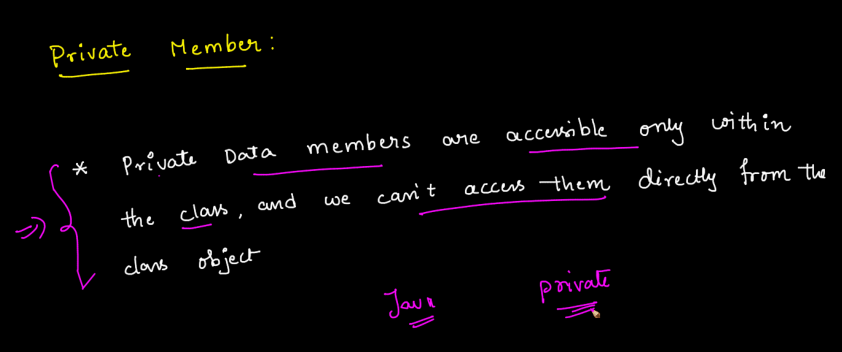 Private Member:
* Private Data members are accessible only within
the class, and we can't access them directly from the
class object
Java private